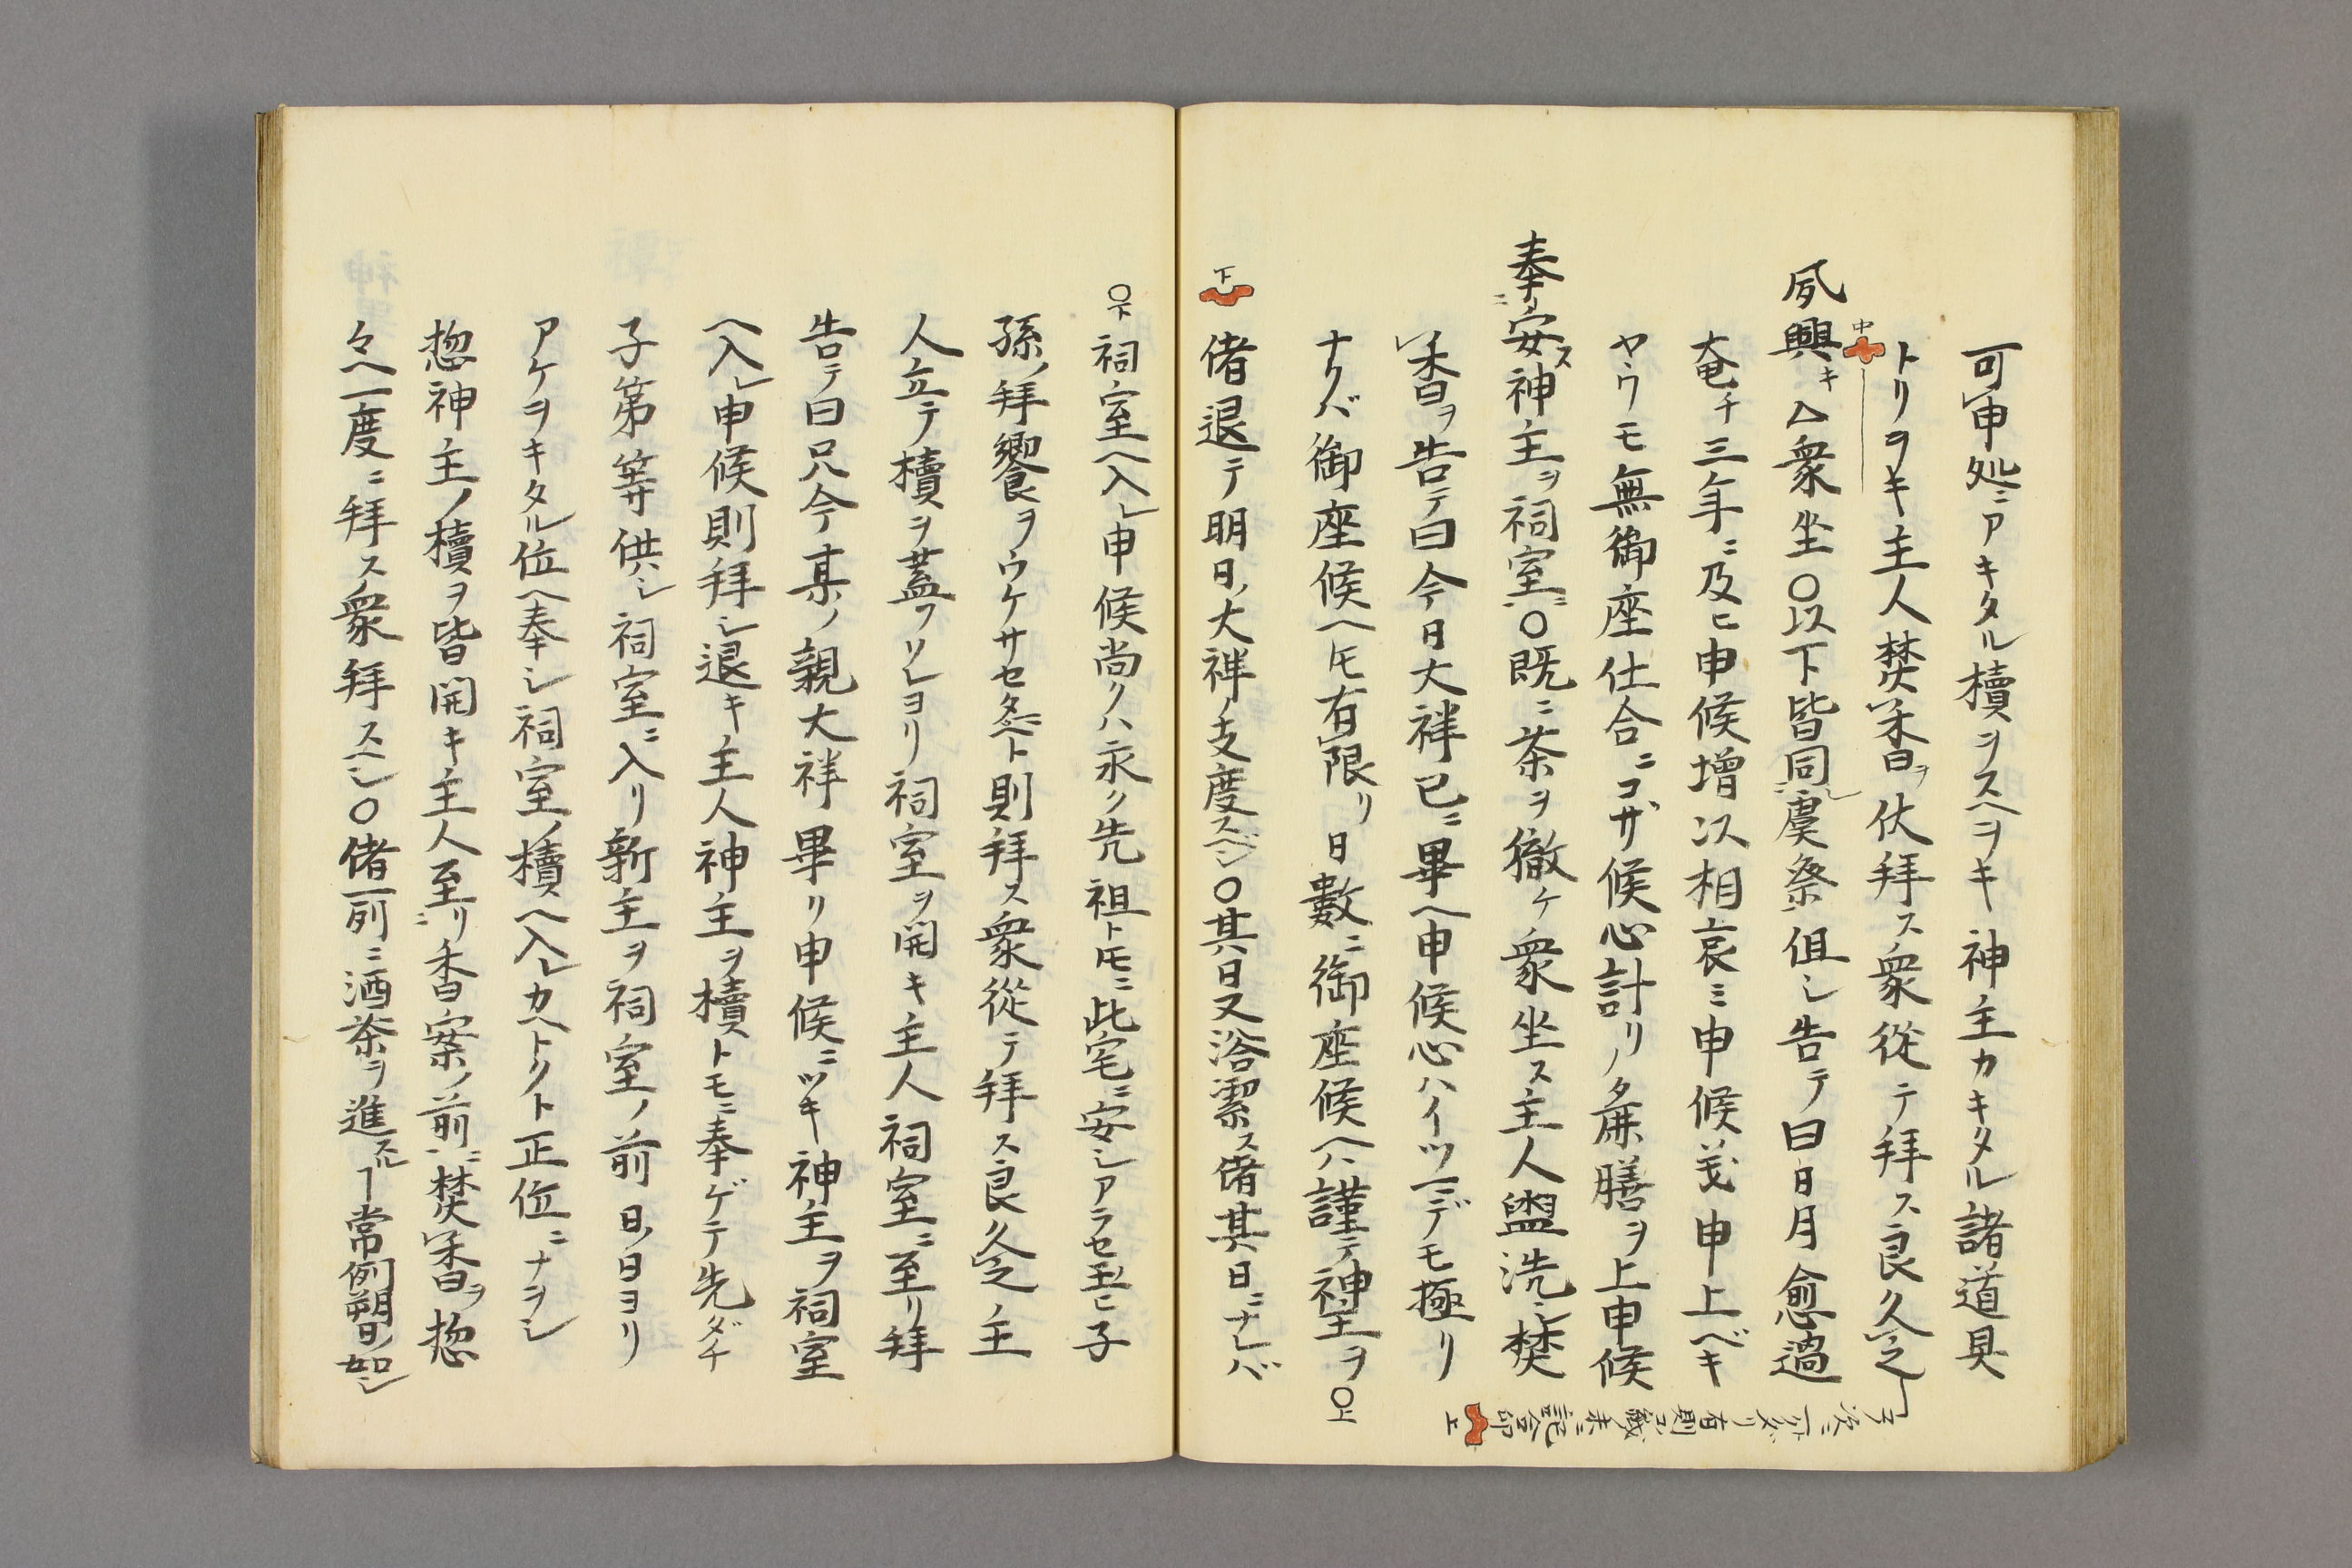 可申処ニアキタル櫝ヲスヘヲキ神主カキタル諸道具
トリヲキ主人焚香ヲ伏拝ス衆從テ拝ス良久之
中
夙興キ△衆坐〇以下皆同シ虞祭但シ告テ曰日月愈過
奄チ三年ニ及ヒ申候増以相哀ミ申候義申上ベキ
ヤウモ無御座仕合ニコザ候心計リノ齋膳ヲ上申候
奉リ安ス神主ヲ祠室ニ〇既ニ茶ヲ徹ケ衆坐ス主人盥洗シ焚
香ヲ告テ曰今日大祥已ニ畢ヘ申候心ハイツニデモ極リ
ナクバ御座候ヘ𪜈有限リ日數ニ御座候ヘハ謹テ神主ヲ〇上
下
偖退テ明日ノ大祥ノ支度スベシ〇其日又浴潔ス偖其日ニナレバ
〇下祠室ヘ入レ申候尚クハ永ク先祖ト𪜈ニ此宅ニ安シアラセ玉ヒ子
孫ノ拝饗ヲウケサセタベト則拝ス衆從テ拝ス良久之ノ主
人立テ櫝ヲ蓋フソレヨリ祠室ヲ開キ主人祠室ニ至リ拝
告テ曰只今某ノ親大祥畢リ申候ニツキ神主ヲ祠室
ヘ入レ申候則拝シ退キ主人神主ヲ櫝トモニ奉ゲテ先ダチ
子第等供シ祠室ニ入リ新主ヲ祠室ノ前日ノ日ヨリ
アケヲキタル位ヘ奉シ祠室ノ櫝ヘ入レカヘトクト正位ニナヲシ
惣神主ノ櫝ヲ皆開キ主人至リ香案ノ前ニ焚香ヲ惣
々ヘ一度ニ拝ス衆拝スヘシ〇偖一列ニ酒茶ヲ進スルヿ常例朔日ノ如シ